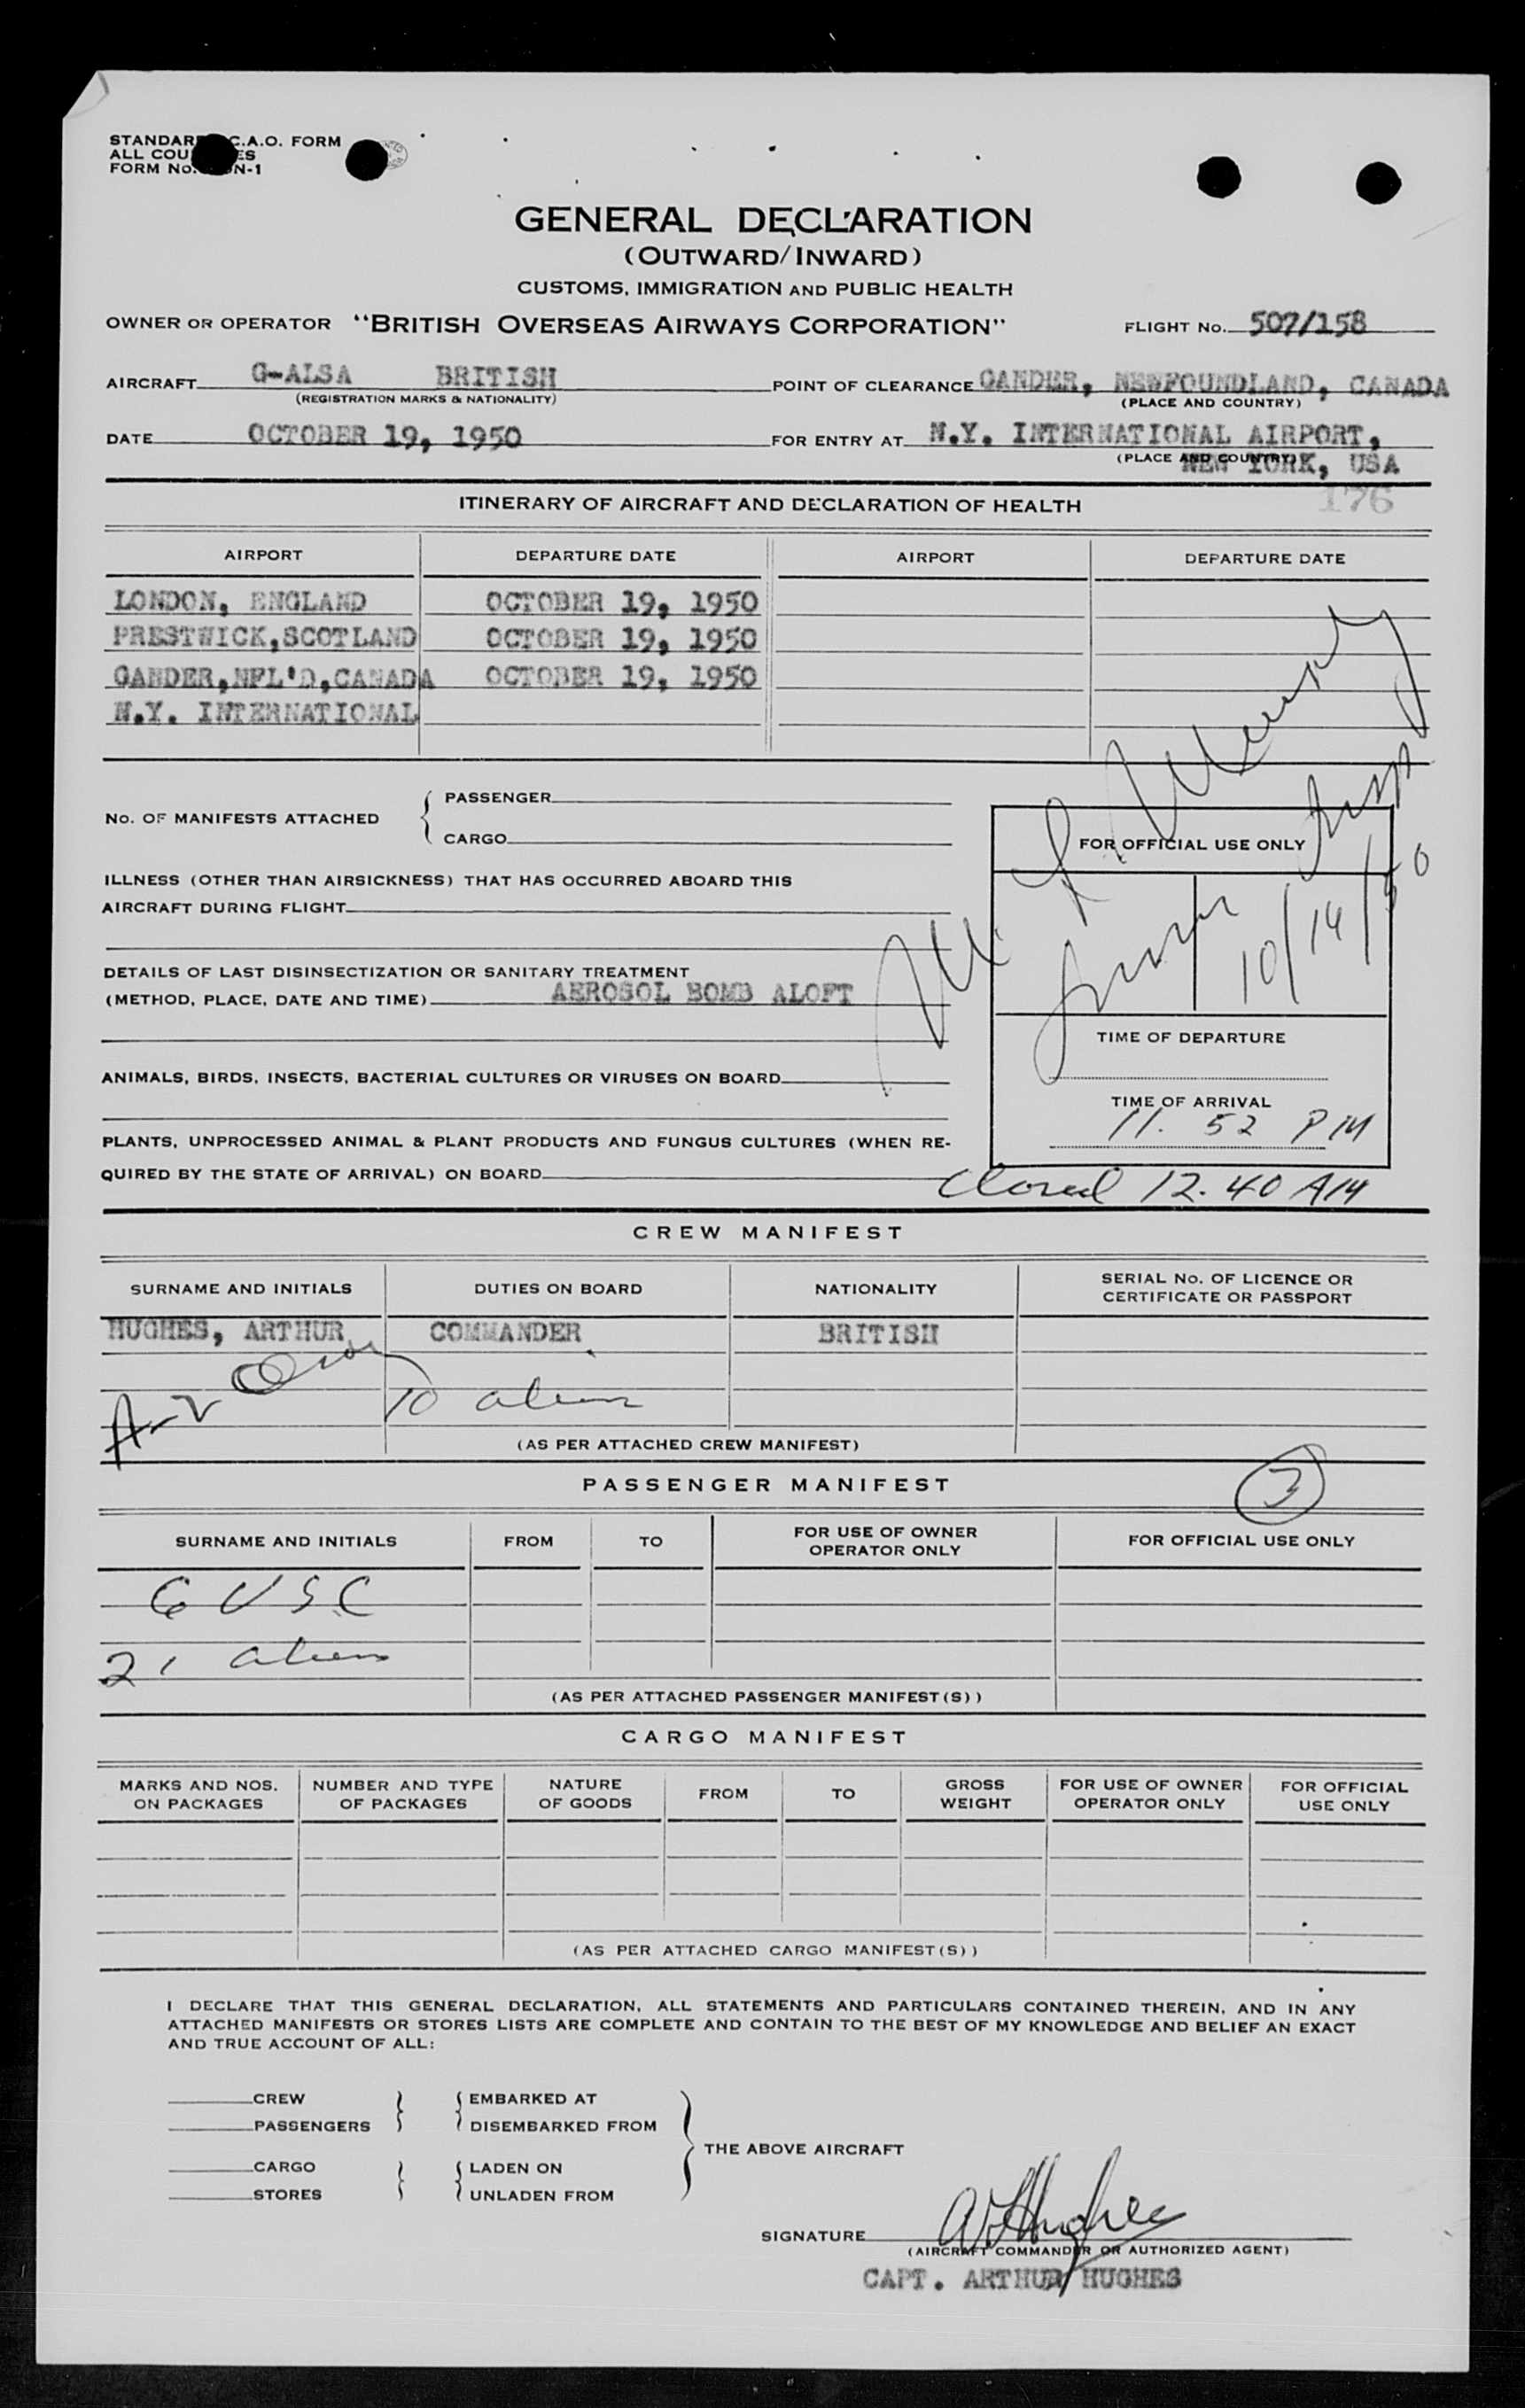 GENERAL DECLARATION
(OUTWARD/INWARD)
CUSTOMS, IMMIGRATION AND PUBLIC HEALTH
OWNER OR OPERATOR "BRITISH OVERSEAS AIRWAYS CORPORATION" FLIGHT No. 507/158
AIRCRAFT G-ALSA BRITISH POINT OF CLEARANCE GANDER, NEWFOUNDLAND, CANADA
(REGISTRATION MARKS & NATIONALITY) (PLACE AND COUNTRY)
DATE OCTOBER 19, 1950 FOR ENTRY AT N.Y. INTERNATIONAL AIRPORT,
(PLACE AND COUNTRY) NEW YORK, USA
176
ITINERARY OF AIRCRAFT AND DECLARATION OF HEALTH
AIRPORT DEPARTURE DATE AIRPORT DEPARTURE DATE
LONDON, ENGLAND OCTOBER 19, 1950
PRESTWICK, SCOTLAND OCTOBER 19, 1950
GANDER, NFL'D, CANADA OCTOBER 19, 1950
N.Y. INTERNATIONAL
No. OF MANIFESTS ATTACHED
PASSENGER
CARGO
FOR OFFICIAL USE ONLY
ILLNESS (OTHER THAN AIRSICKNESS) THAT HAS OCCURRED ABOARD THIS
AIRCRAFT DURING FLIGHT
DETAILS OF LAST DISINSECTIZATION OR SANITARY TREATMENT
(METHOD, PLACE, DATE AND TIME) AEROSOL BOMB ALOFT
TIME OF DEPARTURE
ANIMALS, BIRDS, INSECTS, BACTERIAL CULTURES OR VIRUSES ON BOARD
TIME OF ARRIVAL
11.52 PM
PLANTS, UNPROCESSED ANIMAL & PLANT PRODUCTS AND FUNGUS CULTURES (WHEN RE-
QUIRED BY THE STATE OF ARRIVAL) ON BOARD
Closed 12.40 AM
CREW MANIFEST
SURNAME AND INITIALS DUTIES ON BOARD NATIONALITY SERIAL No. OF LICENCE OR
CERTIFICATE OR PASSPORT
HUGHES, ARTHUR COMMANDER BRITISH
10 alien
(AS PER ATTACHED CREW MANIFEST)
PASSENGER MANIFEST
3
SURNAME AND INITIALS FROM TO FOR USE OF OWNER
OPERATOR ONLY FOR OFFICIAL USE ONLY
6 USC
21 aliens
(AS PER ATTACHED PASSENGER MANIFEST(S))
CARGO MANIFEST
MARKS AND NOS.
ON PACKAGES NUMBER AND TYPE
OF PACKAGES NATURE
OF GOODS FROM TO GROSS
WEIGHT FOR USE OF OWNER
OPERATOR ONLY FOR OFFICIAL
USE ONLY
(AS PER ATTACHED CARGO MANIFEST(S))
I DECLARE THAT THIS GENERAL DECLARATION, ALL STATEMENTS AND PARTICULARS CONTAINED THEREIN, AND IN ANY
ATTACHED MANIFESTS OR STORES LISTS ARE COMPLETE AND CONTAIN TO THE BEST OF MY KNOWLEDGE AND BELIEF AN EXACT
AND TRUE ACCOUNT OF ALL:
CREW EMBARKED AT
PASSENGERS DISEMBARKED FROM
THE ABOVE AIRCRAFT
CARGO LADEN ON
STORES UNLADEN FROM
SIGNATURE
(AIRCRAFT COMMANDER OR AUTHORIZED AGENT)
CAPT. ARTHUR HUGHES